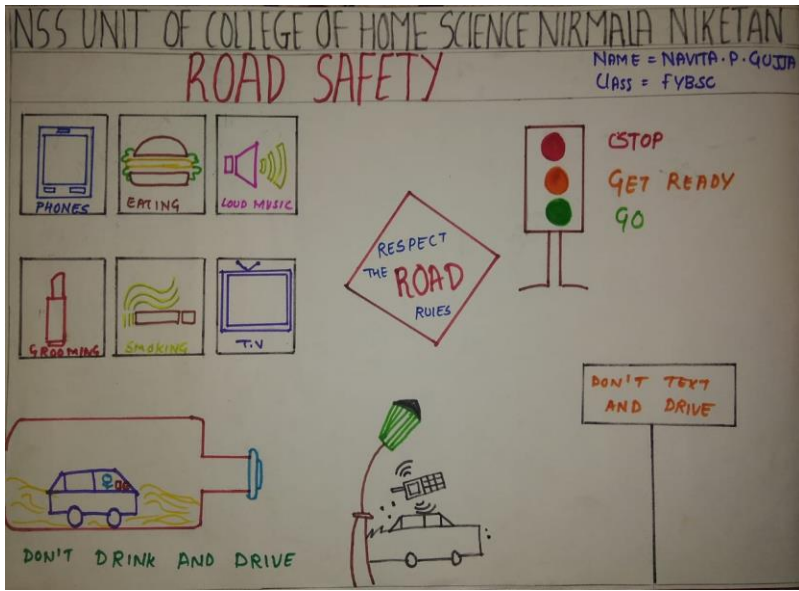 NSS UNIT OF COLLEGE OF HOME SCIENCE NIRMALA NIKETAN
ROAD SAFETY
NAME = NAVITA.P.GUJJA
Class = FYBSC
PHONES
EATING
LOUD MUSIC
GROOMING
SMOKING
T.V
RESPECT
THE ROAD
RULES
STOP
GET READY
GO
DON'T TEXT
AND DRIVE
DON'T DRINK AND DRIVE